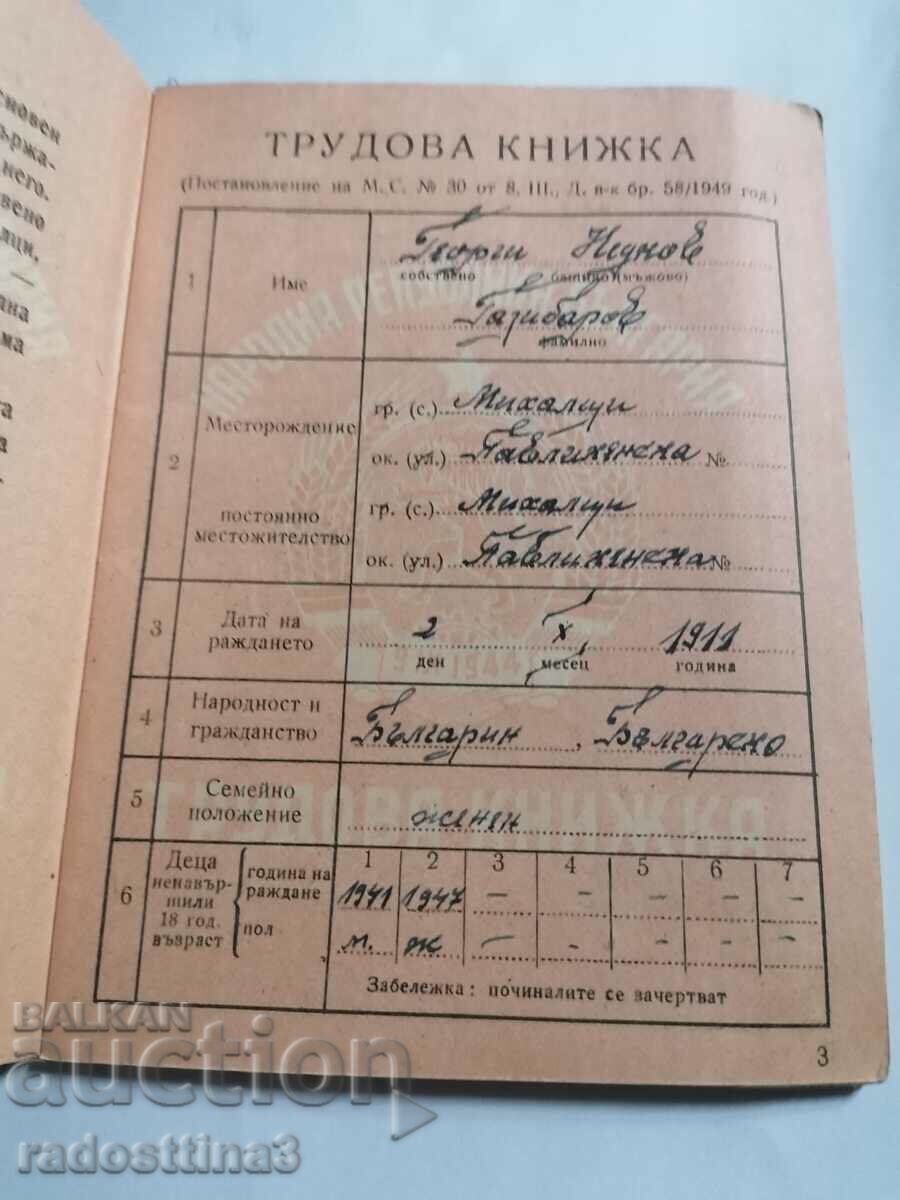 сновен
ържа-
него.
вено
лци,
—
ана
ма
та
а
ТРУДОВА КНИЖКА
(Постановление на М. С. № 30 от 8. III., Д. в-к бр. 58/1949 год.)
1 Име Георги Неднов
собствено бащино (мъжово)
Газибаров
фамилно
2 Месторождение гр. (с.) Михалци
ок. (ул.) Павликенска №
постоянно местожителство гр. (с.) Михалци
ок. (ул.) Павликенска №
3 Дата на раждането 2 X 1911
ден месец година
4 Народност и гражданство Българин, Българско
5 Семейно положение женен
6 Деца ненавършили 18 год. възраст
1 2 3 4 5 6 7
година на раждане 1941 1947 — — — — —
пол м. ж — — — — —
Забележка: починалите се зачертват
3
НАРОДНА РЕПУБЛИКА БЪЛГАРИЯ
9 IX 1944
ТРУДОВА КНИЖКА
BALKAN
auction
radosttina3